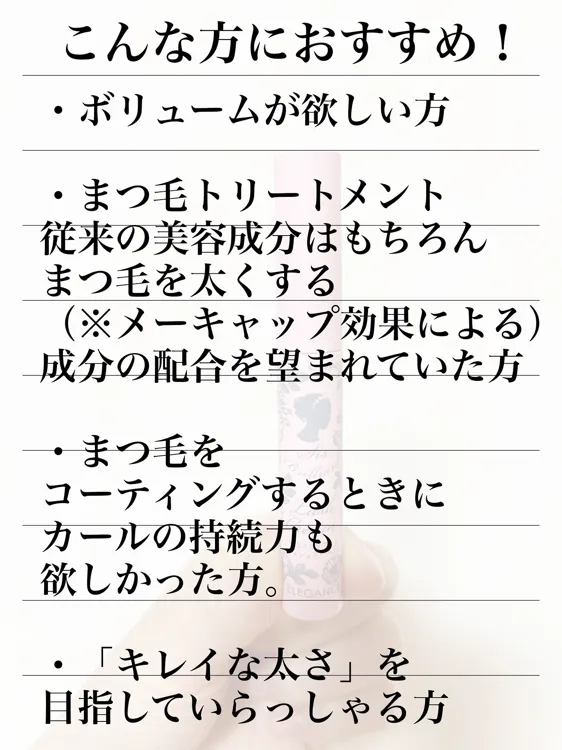 こんな方におすすめ！
・ボリュームが欲しい方
・まつ毛トリートメント
従来の美容成分はもちろん
まつ毛を太くする
（※メーキャップ効果による）
成分の配合を望まれていた方
・まつ毛を
コーティングするときに
カールの持続力も
欲しかった方。
・「キレイな太さ」を
目指していらっしゃる方